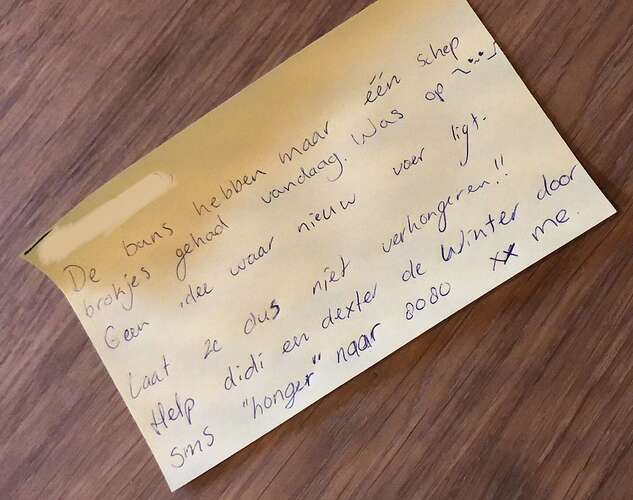 De buns hebben maar één schep
brokjes gehad vandaag. Was op ~"~
Geen idee waar nieuw voer ligt.
Laat ze dus niet verhongeren!!
Help didi en dexter de Winter door
sms "honger" naar 8080 xx me.